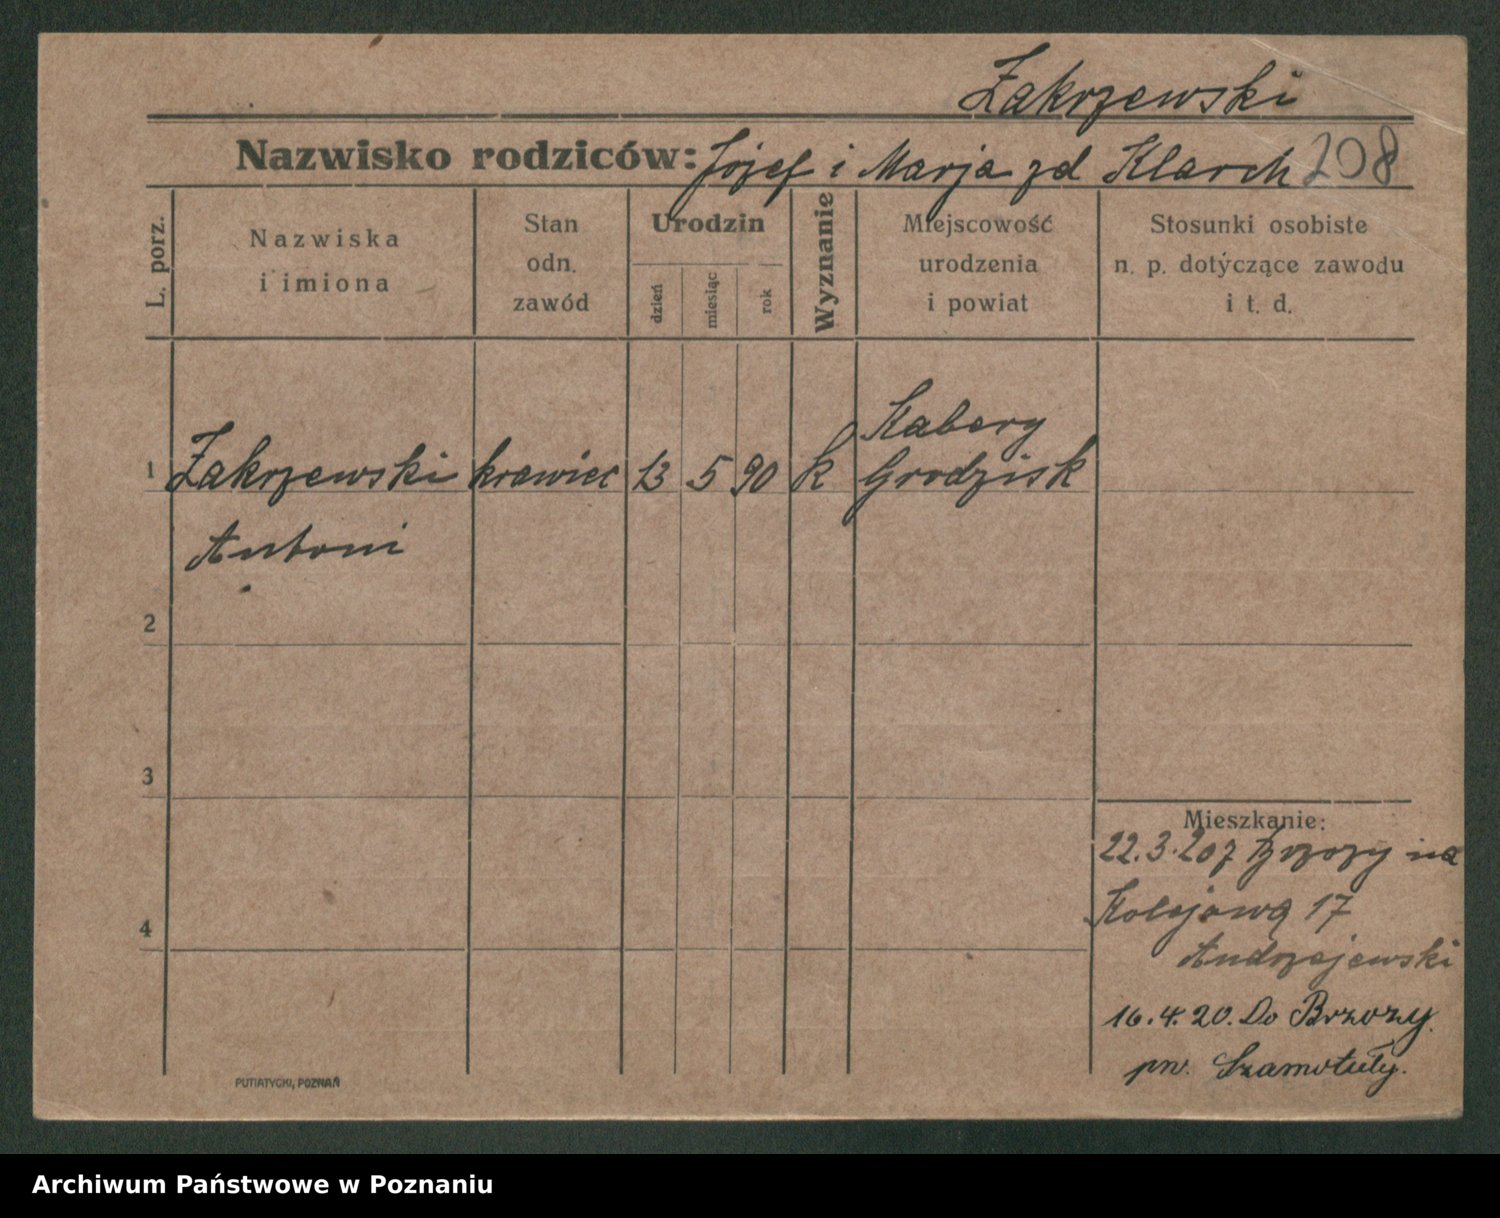 Zakrzewski
Nazwisko rodziców: Józef i Marja zd Klarch 208
L. porz.
Nazwiska i imiona
Stan odn. zawód
Urodzin
dzień
miesiąc
rok
Wyznanie
Miejscowość urodzenia i powiat
Stosunki osobiste n. p. dotyczące zawodu i t. d.
1 Zakrzewski krawiec 13 5 90 k Kabery Grodzisk
Antoni
2
3
4
Mieszkanie:
22.3.20 z Brzozy na
Kolejową 17
Andrzejewski
16.4.20. Do Brzozy.
pw. Szamotuły.
PUTIATYCKI, POZNAŃ
Archiwum Państwowe w Poznaniu